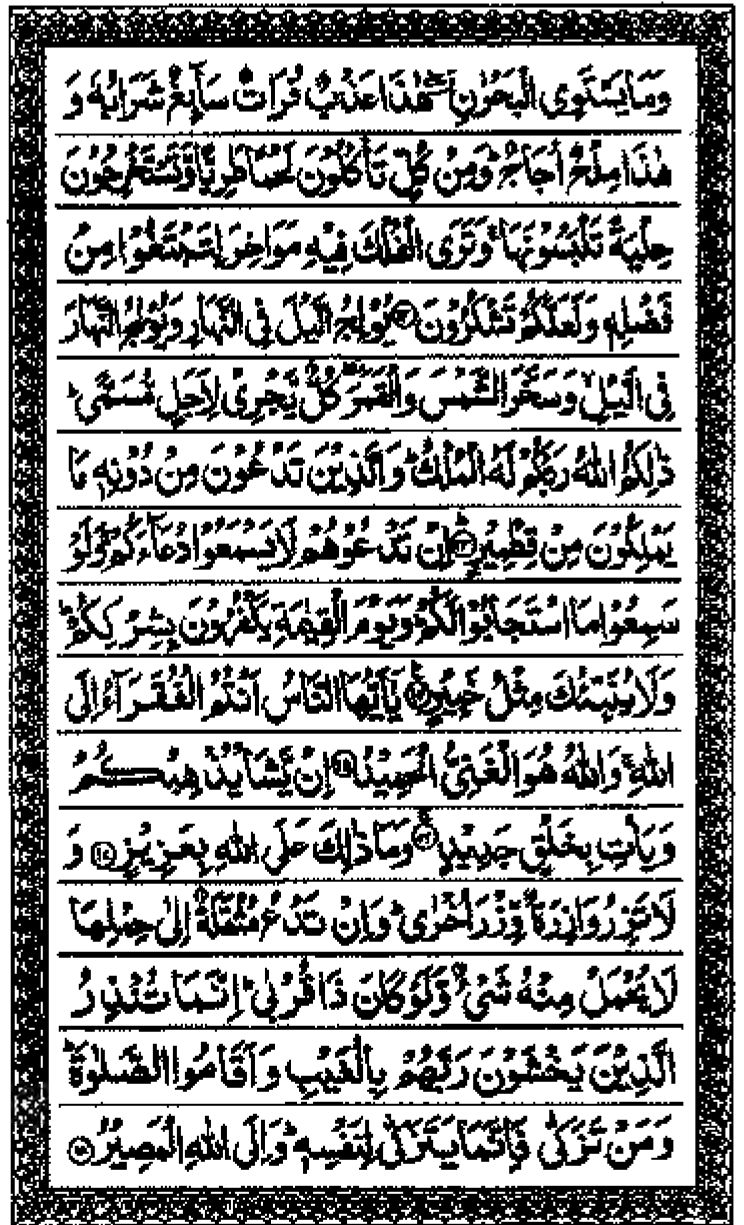 وَمَا يَسْتَوِى الْبَحْرٰنِ ۖ هٰذَا عَذْبٌ فُرَاتٌ سَآئِغٌ شَرَابُهٗ وَ
هٰذَا مِلْحٌ اُجَاجٌ ؕ وَمِنْ كُلٍّ تَاْكُلُوْنَ لَحْمًا طَرِيًّا وَّتَسْتَخْرِجُوْنَ
حِلْيَةً تَلْبَسُوْنَهَا ۚ وَتَرَى الْفُلْكَ فِيْهِ مَوَاخِرَ لِتَبْتَغُوْا مِنْ
فَضْلِهٖ وَلَعَلَّكُمْ تَشْكُرُوْنَ ۝۱۲ يُوْلِجُ الَّيْلَ فِى النَّهَارِ وَيُوْلِجُ النَّهَارَ
فِى الَّيْلِ ۙ وَسَخَّرَ الشَّمْسَ وَالْقَمَرَ ۖ كُلٌّ يَّجْرِىْ لِاَجَلٍ مُّسَمًّى ؕ
ذٰلِكُمُ اللّٰهُ رَبُّكُمْ لَهُ الْمُلْكُ ؕ وَالَّذِيْنَ تَدْعُوْنَ مِنْ دُوْنِهٖ مَا
يَمْلِكُوْنَ مِنْ قِطْمِيْرٍ ۝۱۳ اِنْ تَدْعُوْهُمْ لَا يَسْمَعُوْا دُعَآءَكُمْ ۚ وَلَوْ
سَمِعُوْا مَا اسْتَجَابُوْا لَكُمْ ؕ وَيَوْمَ الْقِيٰمَةِ يَكْفُرُوْنَ بِشِرْكِكُمْ ؕ
وَلَا يُنَبِّئُكَ مِثْلُ خَبِيْرٍ ۝۱۴ يٰۤاَيُّهَا النَّاسُ اَنْتُمُ الْفُقَرَآءُ اِلَى
اللّٰهِ ۚ وَاللّٰهُ هُوَ الْغَنِىُّ الْحَمِيْدُ ۝۱۵ اِنْ يَّشَاْ يُذْهِبْكُمْ
وَيَاْتِ بِخَلْقٍ جَدِيْدٍ ۝۱۶ وَمَا ذٰلِكَ عَلَى اللّٰهِ بِعَزِيْزٍ ۝۱۷ وَ
لَا تَزِرُ وَازِرَةٌ وِّزْرَ اُخْرٰى ؕ وَاِنْ تَدْعُ مُثْقَلَةٌ اِلٰى حِمْلِهَا
لَا يُحْمَلْ مِنْهُ شَىْءٌ وَّلَوْ كَانَ ذَا قُرْبٰى ؕ اِنَّمَا تُنْذِرُ
الَّذِيْنَ يَخْشَوْنَ رَبَّهُمْ بِالْغَيْبِ وَاَقَامُوا الصَّلٰوةَ ؕ
وَمَنْ تَزَكّٰى فَاِنَّمَا يَتَزَكّٰى لِنَفْسِهٖ ؕ وَاِلَى اللّٰهِ الْمَصِيْرُ ۝۱۸